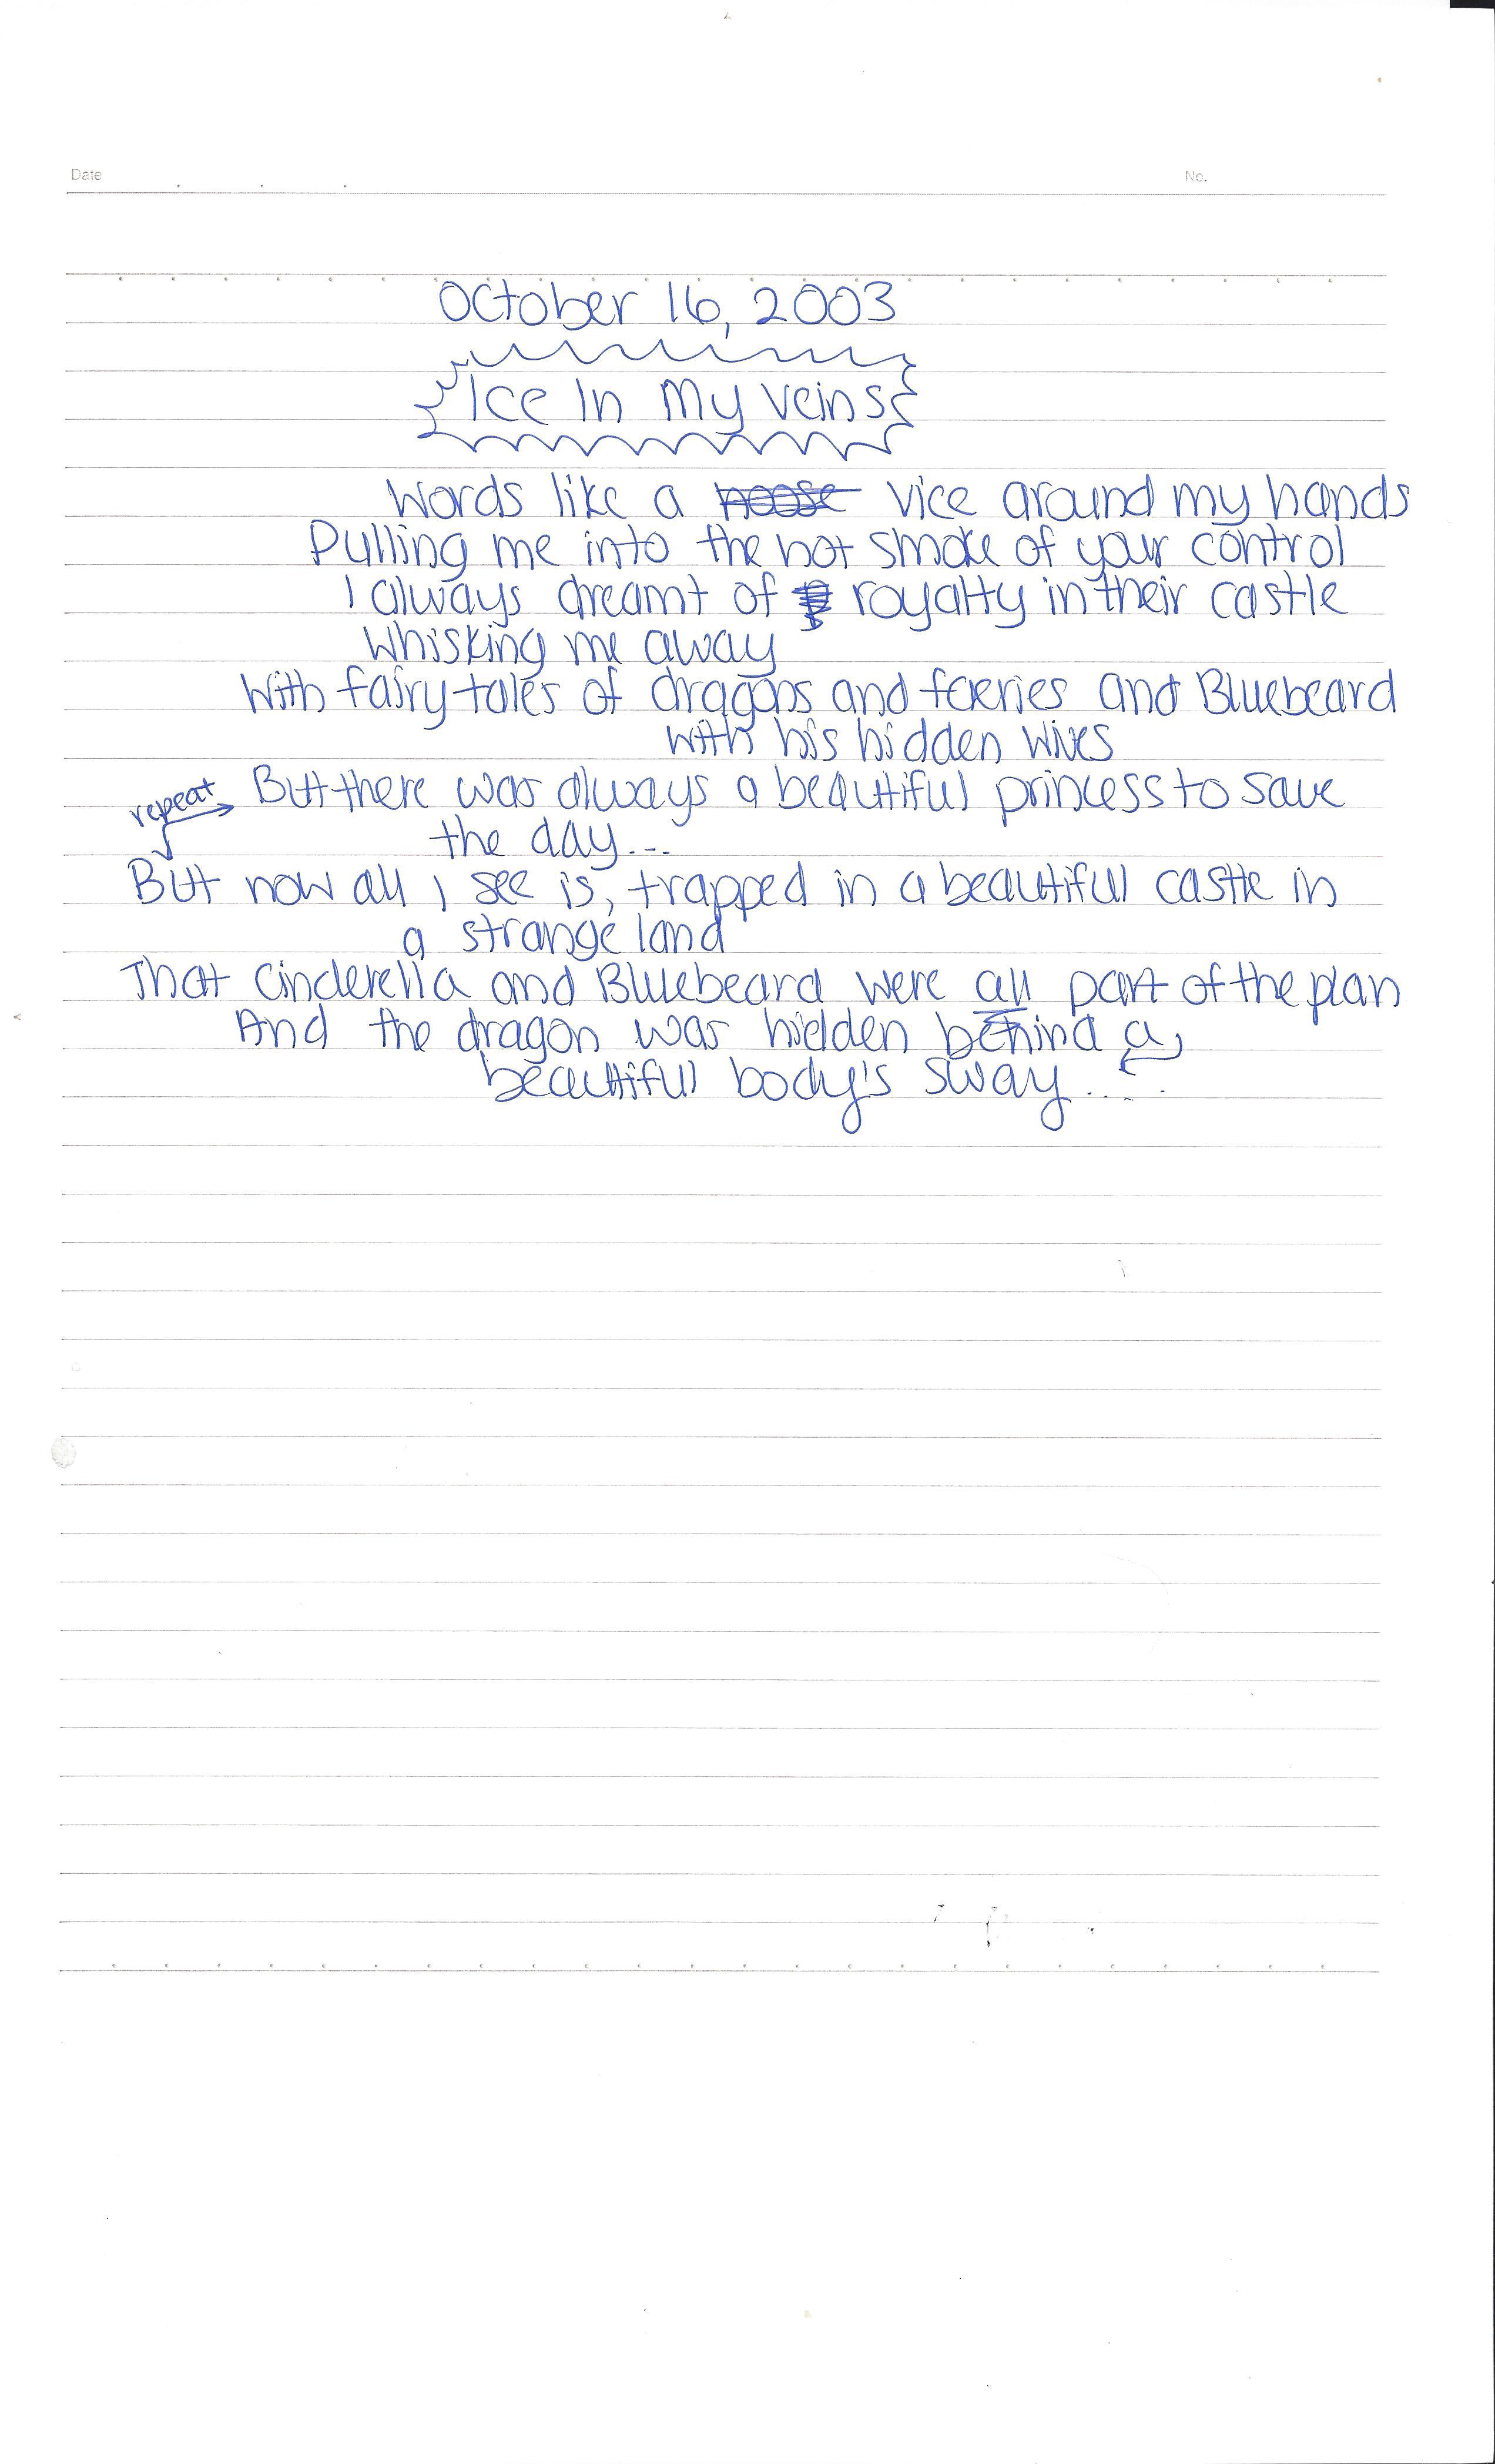 Date No.
October 16, 2003
Ice In My Veins
Words like a noose vice around my hands
Pulling me into the hot smoke of your control
I always dreamt of royalty in their castle
Whisking me away
With fairytales of dragons and faeries and Bluebeard
with his hidden wives
repeat But there was always a beautiful princess to save
the day...
But now all I see is, trapped in a beautiful castle in
a strange land
That Cinderella and Bluebeard were all part of the plan
And the dragon was hidden behind a
beautiful body's sway....